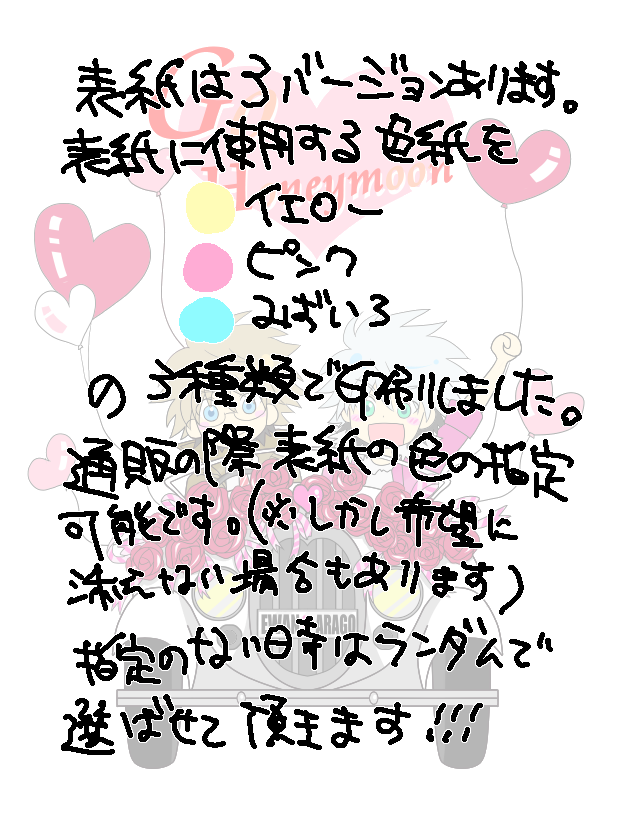 表紙は3バージョンあります。
Go
表紙に使用する色紙を
Honeymoon
イエロー
ピンク
みずいろ
の3種類で印刷しました。
通販の際表紙の色の指定
可能です。(※しかし希望に
添えない場合もあります)
EWAN GARAGO
指定のない時はランダムで
選ばせて頂きます!!!